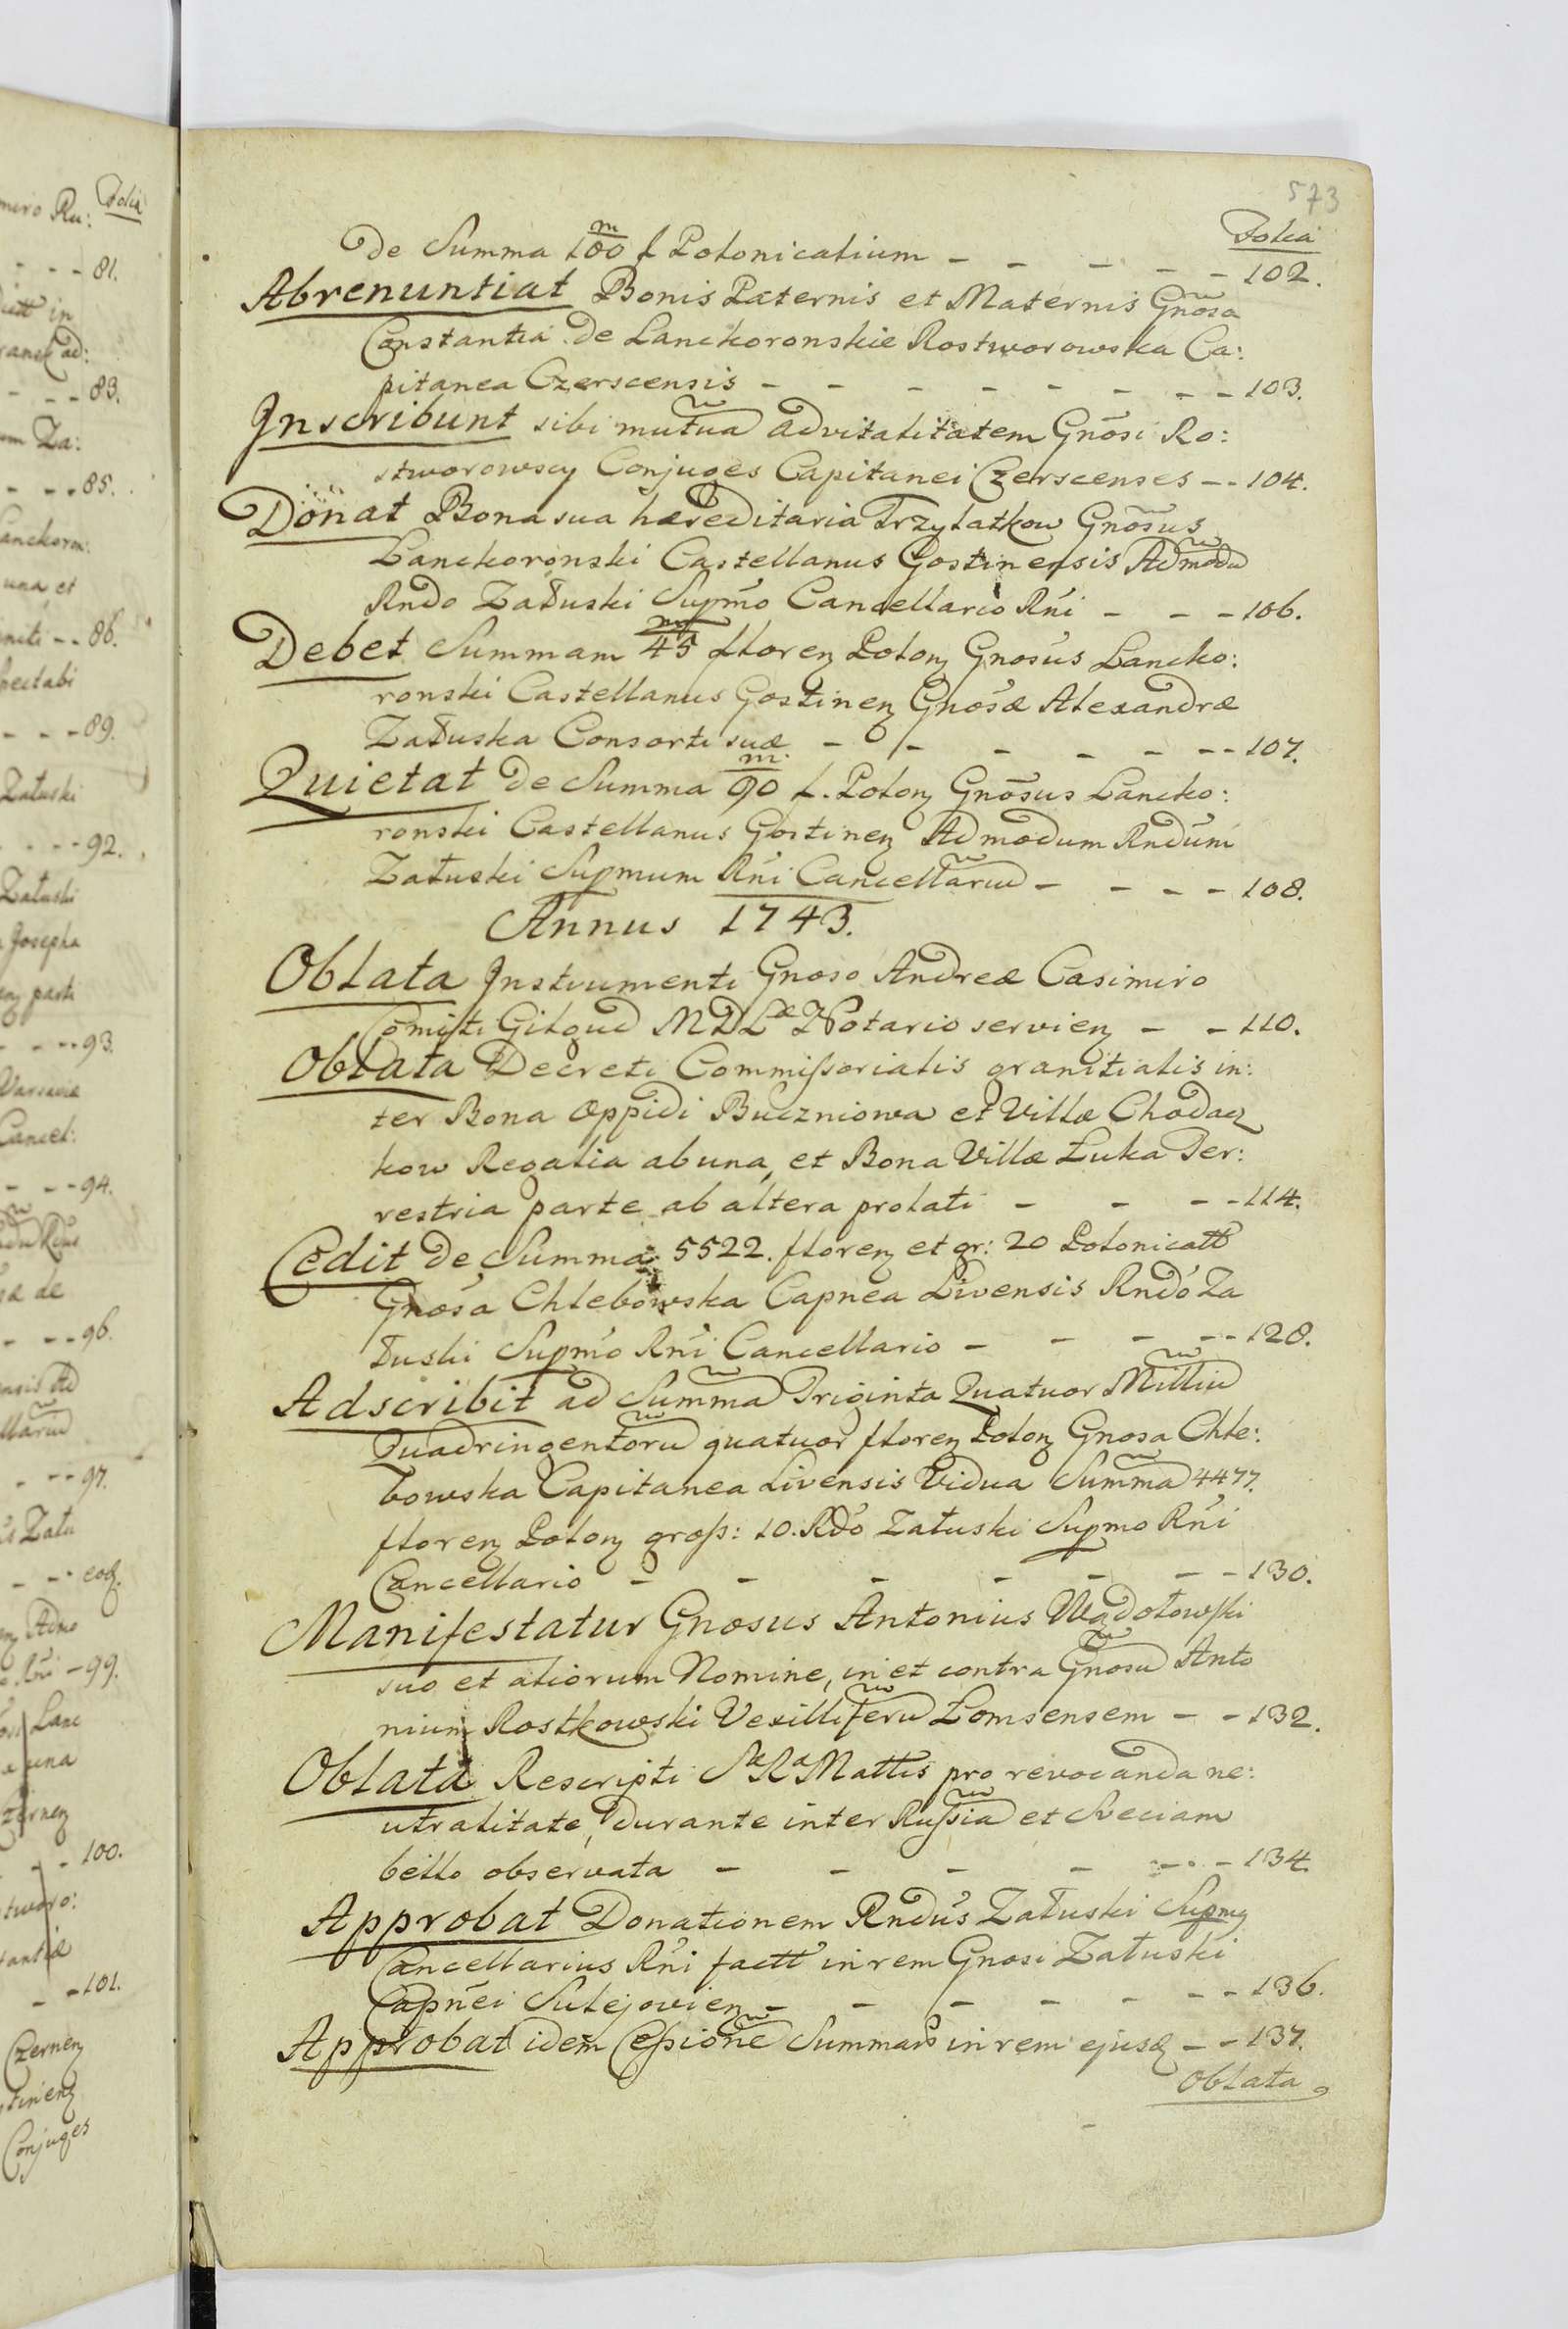 573
Folia
De Summa 100 m f Polonicalium - - - - - 102.
Abrenuntiat Bonis Paternis et Maternis Gnosa
Constantia de Lanckoronskie Rostworowska Ca:
pitanea Czerscensis - - - - - - - - 103.
Inscribunt sibi mutua advitalitatem Gnosi Ro:
stworowscy Conjuges Capitanei Czerscenses - - 104.
Donat Bona sua hæreditaria Trzylatkow Gnosus
Lanckoronski Castellanus Gostinensis Admodu
Rndo Załuski Supmo Cancellario Rni - - - 106.
Debet Summam 45 m floreņ Poloņ Gnosus Lancko:
ronski Castellanus Gostineņ Gnosæ Alexandræ
Załuska Consorti suæ - - - - - - - 107.
Quietat de Summa 90 m f. Poloņ Gnosus Lancko:
ronski Castellanus Gostineņ Admodum Rndum
Załuski Supmum Rni Cancellariu - - - - 108.
Annus 1743.
Oblata Instrumenti Gnoso Andreæ Casimiro
Comiti Giłgud MDLæ Notario servieņ - - 110.
Oblata Decreti Commissorialis granitialis in:
ter Bona Oppidi Buczniowa et Villæ Chodacz
kow Regalia ab una, et Bona Villæ Łuka Ter:
restria parte ab altera prolati - - - - 114.
Cedit de Summa 5522. floreņ et gr: 20 Polonicatt
Gnosa Chlebowska Capnea Livensis Rndo Za
łuski Supmo Rni Cancellario - - - - - 128.
Adscribit ad Summa Triginta Quatuor Milliu
Quadringentoru quatuor floreņ Poloņ Gnosa Chle:
bowska Capitanea Livensis Vidua Summa 4477.
floreņ Poloņ gross: 10. Rdo Załuski Supmo Rni
Cancellario - - - - - - - 130.
Manifestatur Gnosus Antonius Wądołowski
suo et aliorum Nomine, in et contra Gnosu Anto
nium Rostkowski Vexilliferu Łomsensem - - 132.
Oblata Rescripti Sæ Ræ Mattis pro revocanda ne:
utralitate, durante inter Russia et Sveciam
bello observata - - - - - - 134.
Approbat Donationem Rndus Załuski Supmȝ
Cancellarius Rni factt in rem Gnosi Załuski
Capnei Sulejovieņ - - - - - - - 136.
Approbat idem Cessione Summaru in rem ejusd - - 137.
Oblata